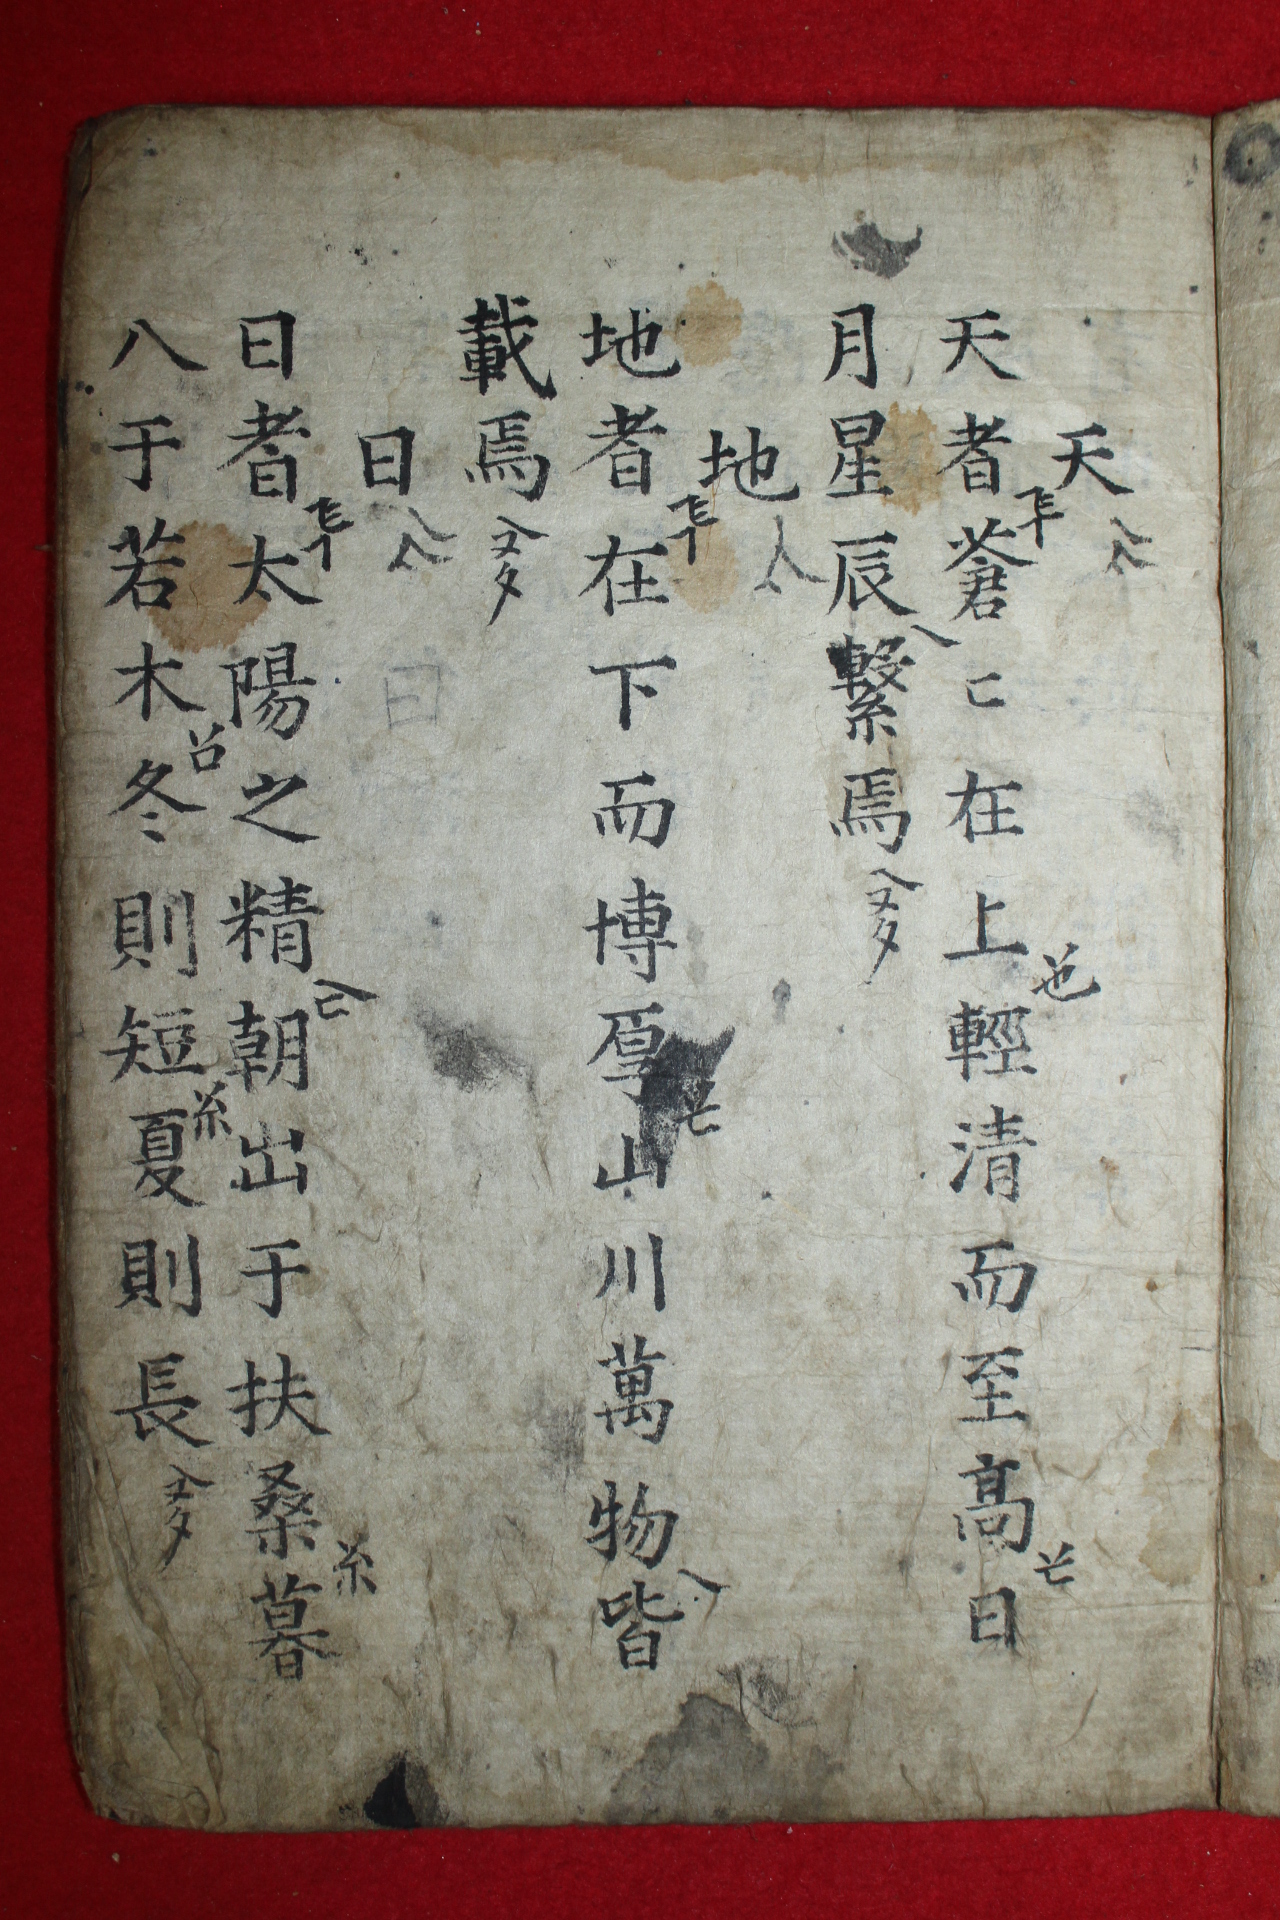 天
天者蒼〻在上輕清而至高日
月星辰繫焉
地
地者在下而博厚山川萬物皆
載焉
日 日
日者太陽之精朝出于扶桑暮
入于若木冬則短夏則長